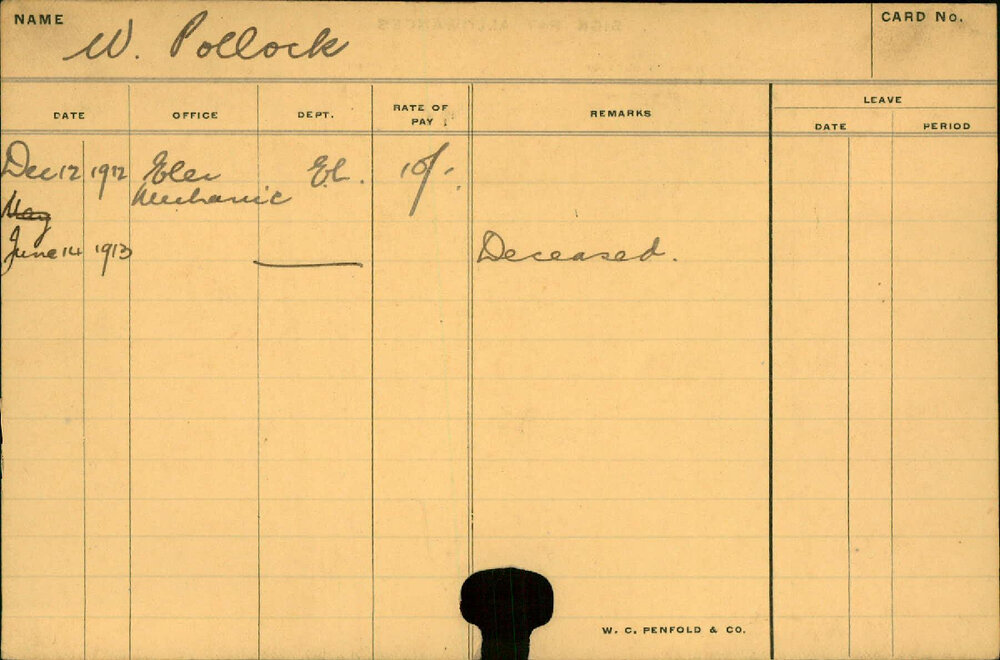 NAME
W. Pollock
CARD No.
DATE OFFICE DEPT. RATE OF PAY REMARKS LEAVE
DATE PERIOD
Dec 12 1912 Elec Mechanic El. 10/-
May
June 14 1913 Deceased.
W. C. PENFOLD & CO.